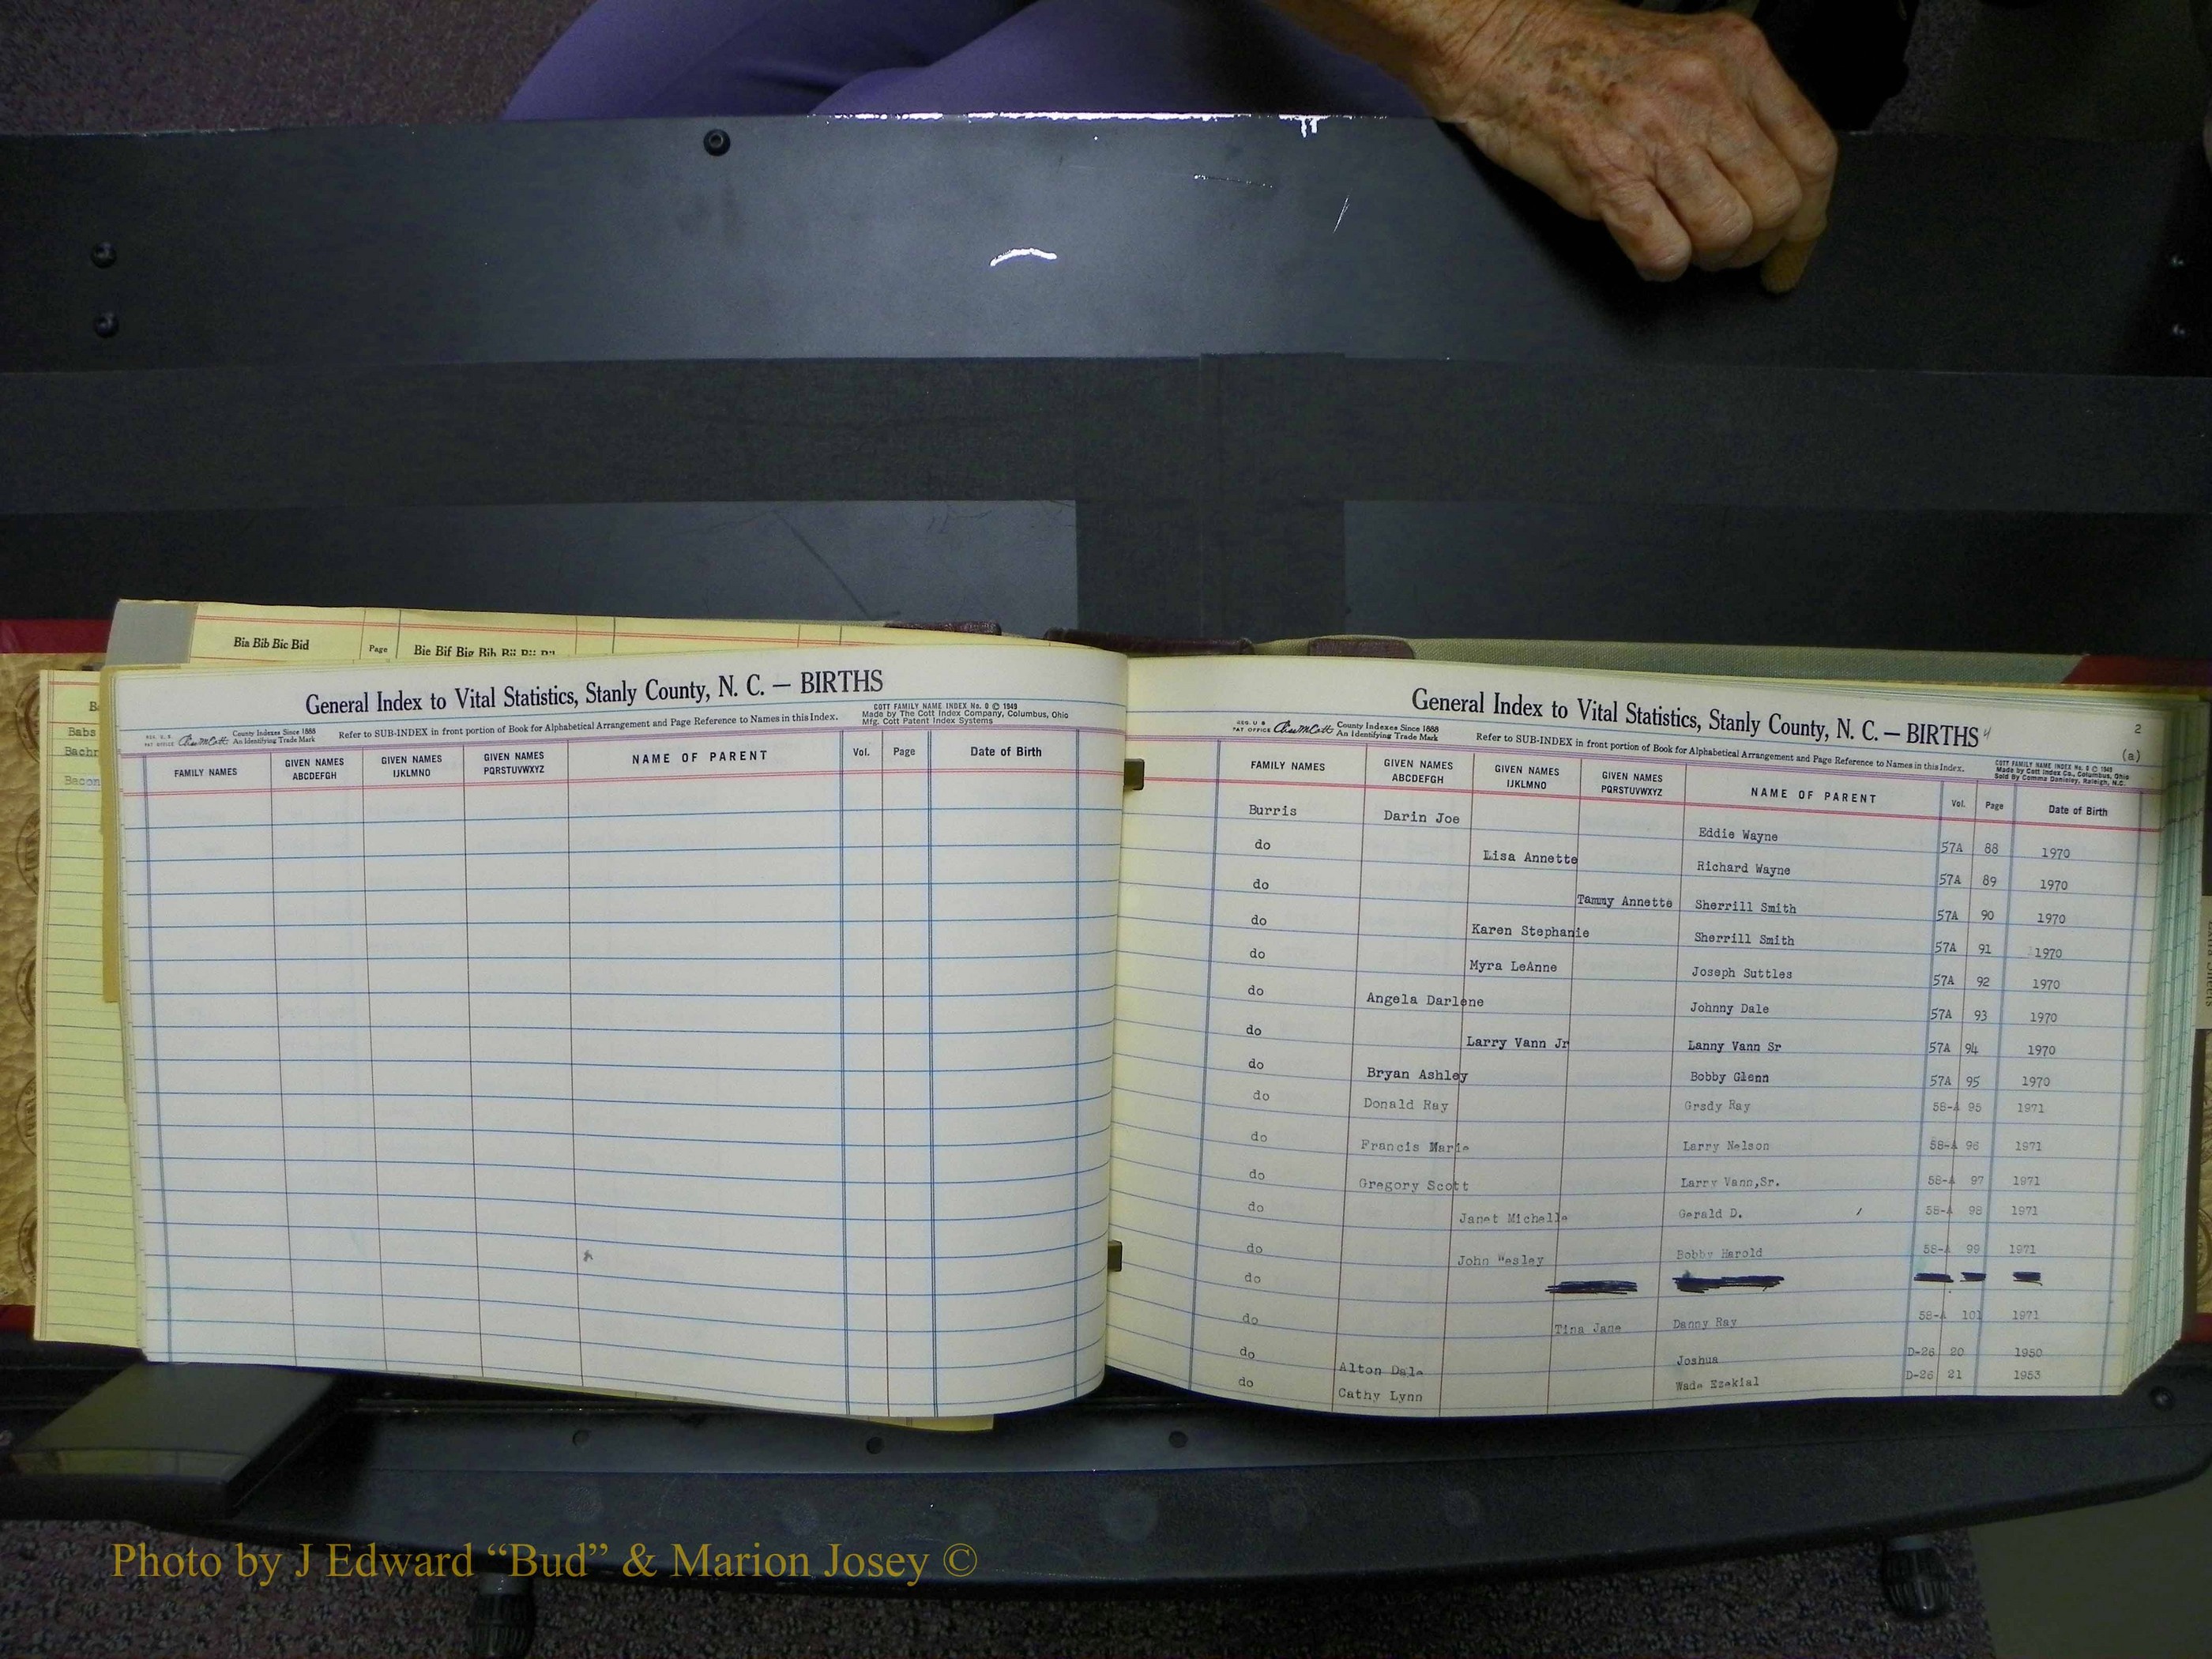 Bia Bib Bic Bid Page Bie Bif Big Bih Bii Bij
Babs
Bachr
Bacon
General Index to Vital Statistics, Stanly County, N. C. — BIRTHS
COTT FAMILY NAME INDEX No. 0 © 1949
Made by The Cott Index Company, Columbus, Ohio
Mfg. Cott Patent Index Systems
County Indexes Since 1888
An Identifying Trade Mark
Refer to SUB-INDEX in front portion of Book for Alphabetical Arrangement and Page Reference to Names in this Index.
FAMILY NAMES GIVEN NAMES ABCDEFGH GIVEN NAMES IJKLMNO GIVEN NAMES PQRSTUVWXYZ NAME OF PARENT Vol. Page Date of Birth
General Index to Vital Statistics, Stanly County, N. C. — BIRTHS 4
2
(a)
County Indexes Since 1888
An Identifying Trade Mark
Refer to SUB-INDEX in front portion of Book for Alphabetical Arrangement and Page Reference to Names in this Index.
COTT FAMILY NAME INDEX No. 0 © 1949
Made by Cott Index Co., Columbus, Ohio
Sold By Raleigh, N.C.
FAMILY NAMES GIVEN NAMES ABCDEFGH GIVEN NAMES IJKLMNO GIVEN NAMES PQRSTUVWXYZ NAME OF PARENT Vol. Page Date of Birth
Burris Darin Joe Eddie Wayne 57A 88 1970
do Lisa Annette Richard Wayne 57A 89 1970
do Tammy Annette Sherrill Smith 57A 90 1970
do Karen Stephanie Sherrill Smith 57A 91 1970
do Myra LeAnne Joseph Suttles 57A 92 1970
do Angela Darlene Johnny Dale 57A 93 1970
do Larry Vann Jr Lanny Vann Sr 57A 94 1970
do Bryan Ashley Bobby Glenn 57A 95 1970
do Donald Ray Grady Ray 58-A 95 1971
do Francis Marie Larry Nelson 58-A 96 1971
do Gregory Scott Larry Vann,Sr. 58-A 97 1971
do Janet Michelle Gerald D. 58-A 98 1971
do John Wesley Bobby Harold 58-A 99 1971
do
do Tina Jane Danny Ray 58-A 101 1971
do Alton Dale Joshua D-26 20 1950
do Cathy Lynn Wade Ezekial D-26 21 1953
Photo by J Edward “Bud” & Marion Josey ©